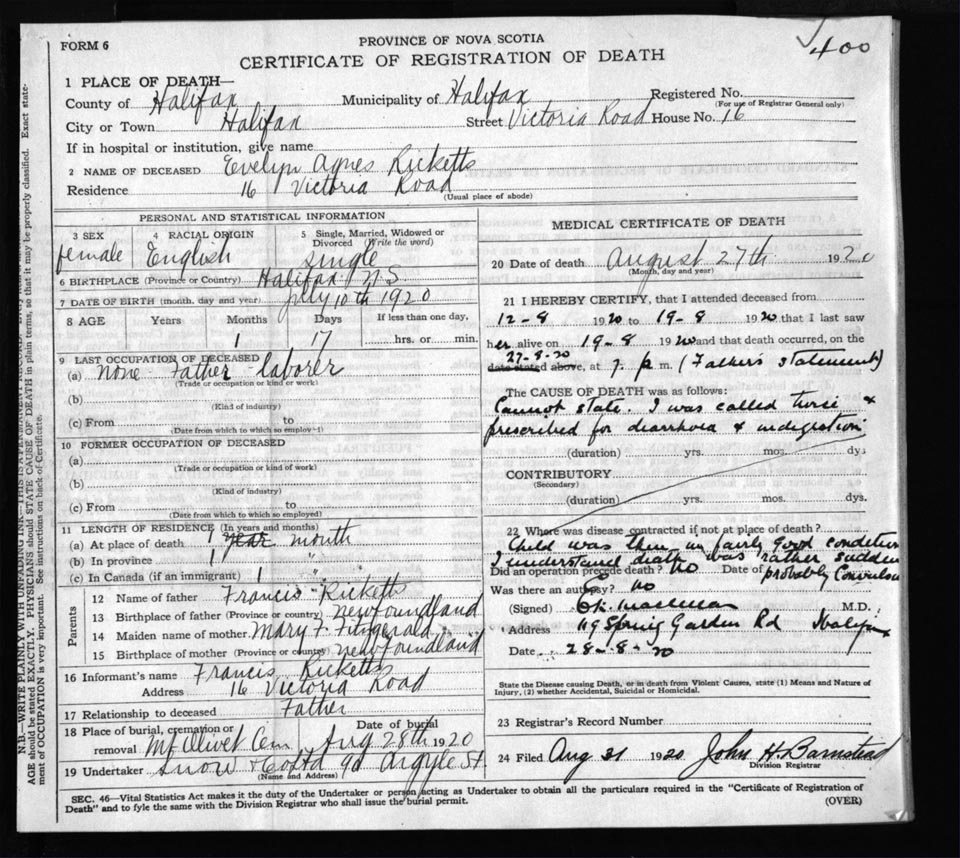 400
FORM 6
PROVINCE OF NOVA SCOTIA
CERTIFICATE OF REGISTRATION OF DEATH
1 PLACE OF DEATH—
County of Halifax Municipality of Halifax Registered No.
(For use of Registrar General only)
City or Town Halifax Street Victoria Road House No. 16
If in hospital or institution, give name
2 NAME OF DECEASED Evelyn Agnes Ricketts
Residence 16 Victoria Road
(Usual place of abode)
PERSONAL AND STATISTICAL INFORMATION
3 SEX 4 RACIAL ORIGIN 5 Single, Married, Widowed or Divorced (Write the word)
female English Single
6 BIRTHPLACE (Province or Country) Halifax N.S
7 DATE OF BIRTH (month, day and year) July 10th 1920
8 AGE Years Months Days If less than one day,
1 17 hrs. or min.
9 LAST OCCUPATION OF DECEASED
(a) None - Father - laborer
(Trade or occupation or kind or work)
(b)
(Kind of industry)
(c) From to
(Date from which to which so employed)
10 FORMER OCCUPATION OF DECEASED
(a)
(Trade or occupation or kind of work)
(b)
(Kind of industry)
(c) From to
(Date from which to which so employed)
11 LENGTH OF RESIDENCE (In years and months)
(a) At place of death 1 year month
(b) In province 1 "
(c) In Canada (if an immigrant) 1 "
Parents
12 Name of father Francis Ricketts
13 Birthplace of father (Province or country) Newfoundland
14 Maiden name of mother Mary F. Fitzgerald
15 Birthplace of mother (Province or country) Newfoundland
16 Informant's name Francis Ricketts
Address 16 Victoria Road
17 Relationship to deceased Father
18 Place of burial, cremation or removal Mt Olivet Cem Date of burial Aug 28th 1920
19 Undertaker Snow & Co Ltd 90 Argyle St.
(Name and Address)
MEDICAL CERTIFICATE OF DEATH
20 Date of death August 27th 1920
(Month, day and year)
21 I HEREBY CERTIFY, that I attended deceased from
12-8 1920 to 19-8 1920 that I last saw
her alive on 19-8 1920 and that death occurred, on the
27-8-20
date stated above, at 7. p.m. (Father's statement)
The CAUSE OF DEATH was as follows:
Cannot state. I was called twice &
prescribed for diarrhoea & indigestion
(duration) yrs. mos. dys
CONTRIBUTORY
(Secondary)
(duration) yrs. mos. dys.
22 Where was disease contracted if not at place of death?
Child was then in fairly good condition
I understand death was rather sudden
Did an operation precede death? No Date of probably Convulsions
Was there an autopsy? no
(Signed) M.D.
Address 119 Spring Garden Rd Halifax
Date 28-8-20
State the Disease causing Death, or in death from Violent Causes, state (1) Means and Nature of
Injury, (2) whether Accidental, Suicidal or Homicidal.
23 Registrar's Record Number
24 Filed Aug 31 1920 John H. Barnstead
Division Registrar
SEC. 46—Vital Statistics Act makes it the duty of the Undertaker or person acting as Undertaker to obtain all the particulars required in the "Certificate of Registration of
Death" and to fyle the same with the Division Registrar who shall issue the burial permit.
(OVER)
AGE should be stated EXACTLY. PHYSICIANS should STATE CAUSE OF DEATH in plain terms, so that it may be properly classified. Exact state-
ment of OCCUPATION is very important. See instructions on back of Certificate.